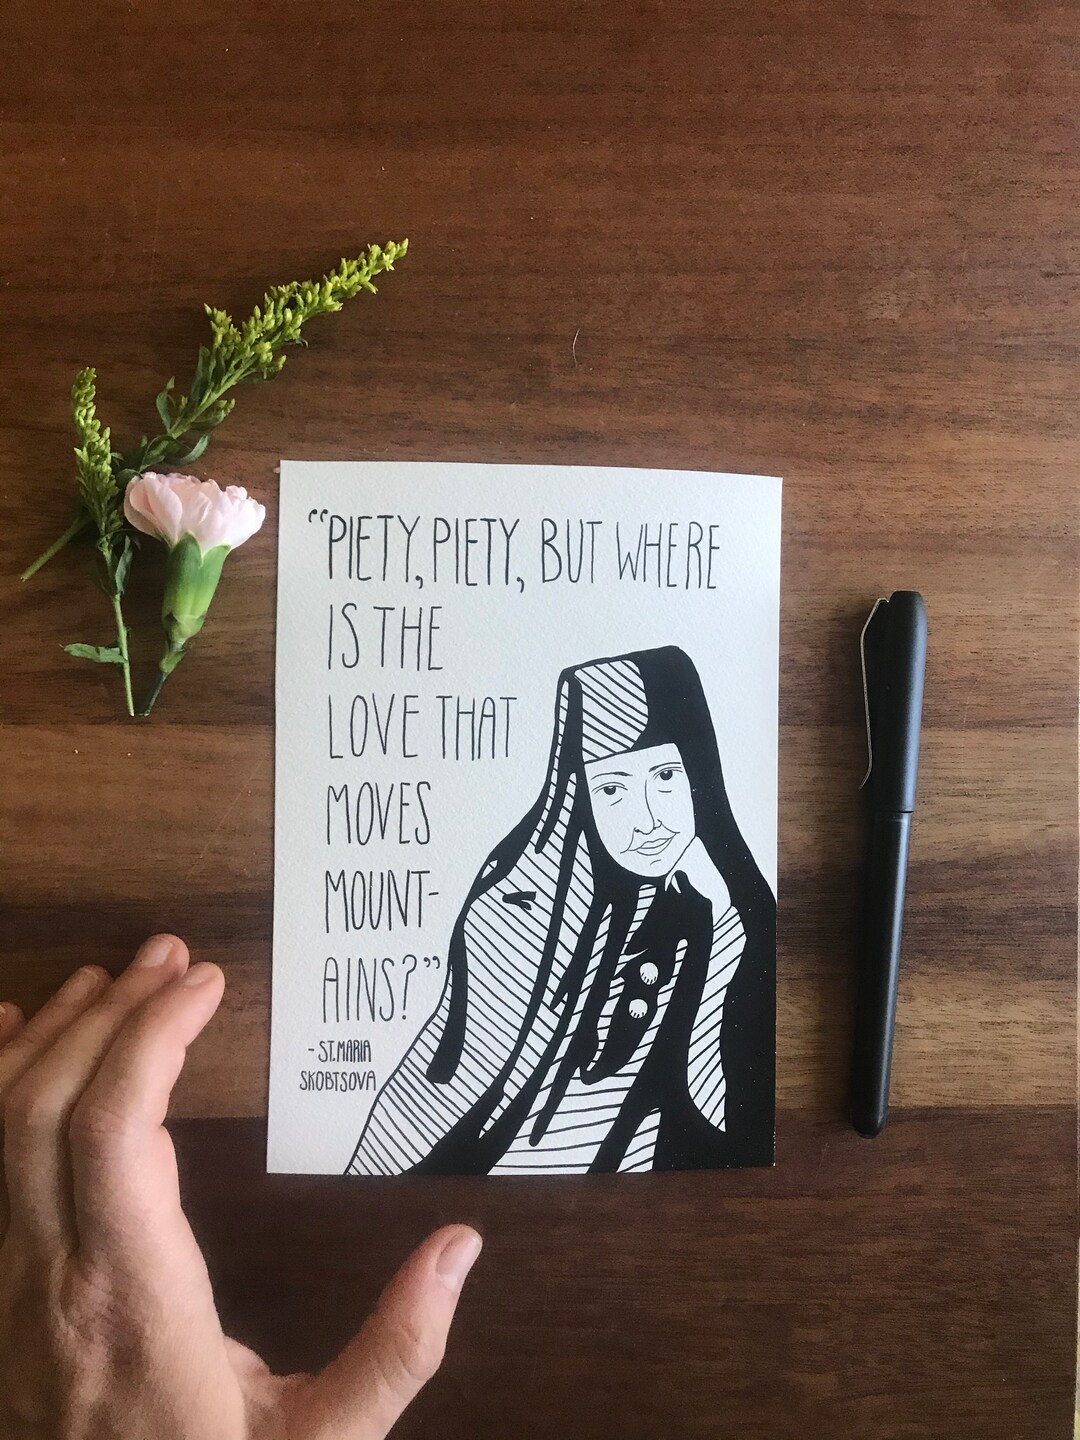 “PIETY, PIETY, BUT WHERE
IS THE
LOVE THAT
MOVES
MOUNT-
AINS?”
- ST. MARIA
SKOBTSOVA